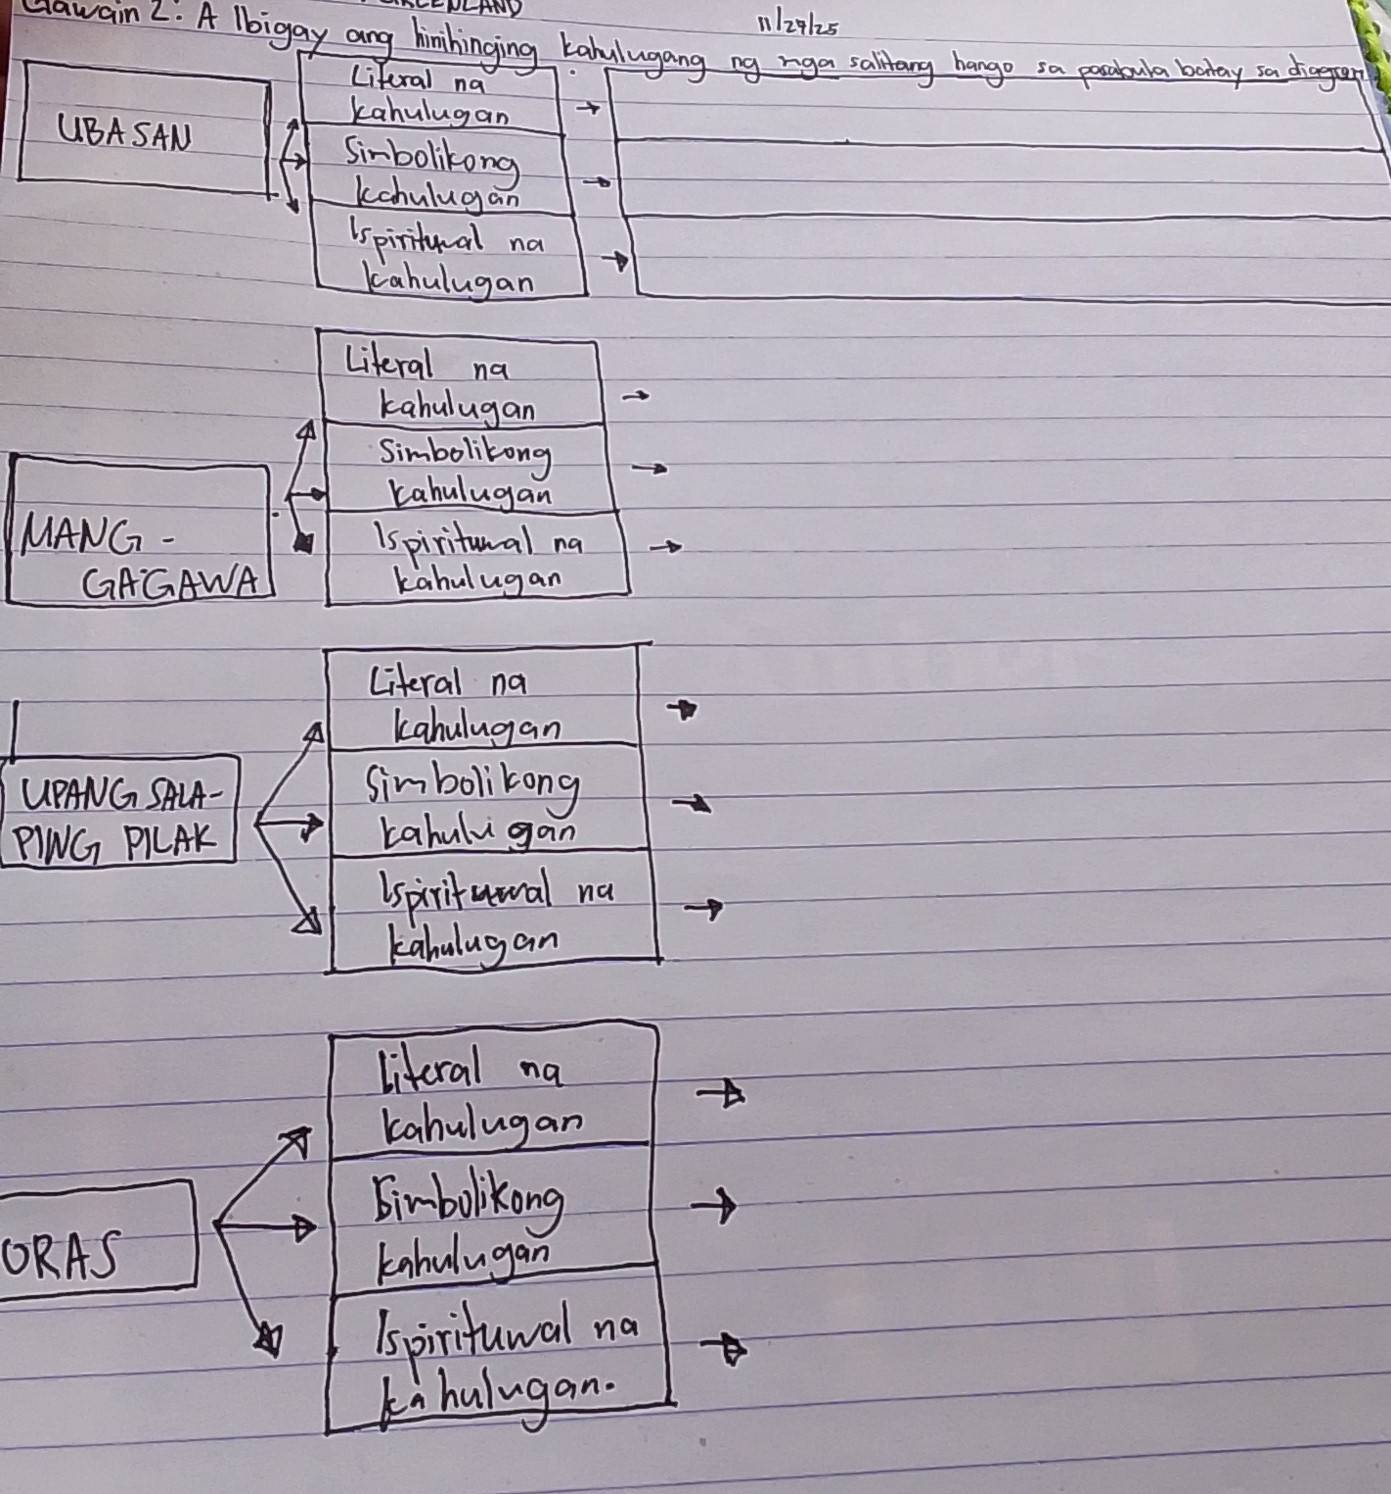 GREENLAND
11/29/25
Gawain 2: A Ibigay ang hinihinging kahulugang ng mga salitang hango sa parabula batay sa diagram
UBASAN
Literal na
kahulugan
Simbolikong
kahulugan
Ispirituwal na
kahulugan
MANG-
GAGAWA
Literal na
kahulugan
Simbolikong
kahulugan
Ispirituwal na
kahulugan
UPANG SALA-
PING PILAK
Literal na
kahulugan
Simbolikong
kahulugan
Ispirituwal na
kahulugan
ORAS
Literal na
kahulugan
Simbolikong
kahulugan
Ispirituwal na
kahulugan.